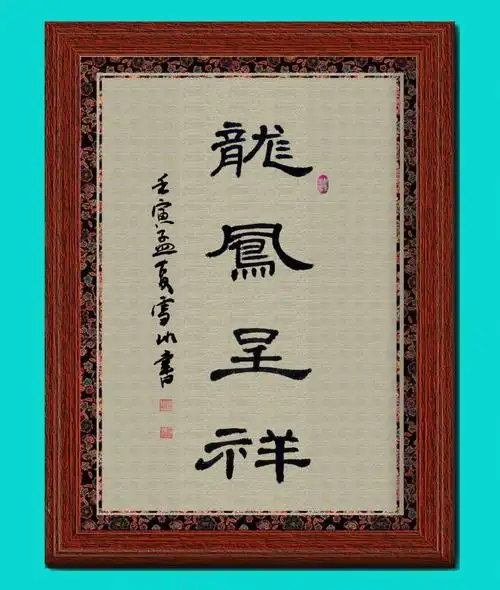 龍鳳呈祥
壬寅孟夏雪冰書